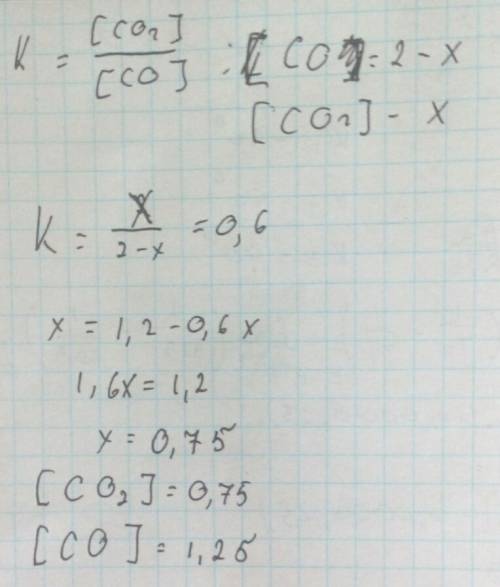 K = [CO2] / [CO] ; [CO] = 2 - x
[CO2] - x
K = x / 2-x = 0,6
x = 1,2 - 0,6x
1,6x = 1,2
x = 0,75
[CO2] = 0,75
[CO] = 1,25